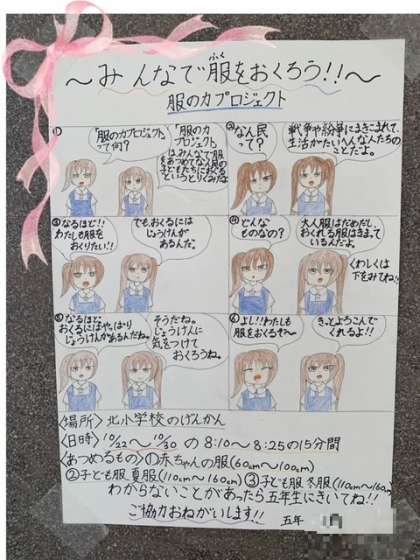 ～みんなで服をおくろう!!～
ふく
服の力プロジェクト
①
「服の力プロジェクト」
って何?
「服の力
プロジェクト」
はみんなで服
をあつめてなん民の
子どもたちにおくる
というとりくみだよ
②なん民
って?
戦争や紛争にまきこまれて、
生活がたいへんな人たちの
ことだよ。
③なるほど!!
わたしも服を
おくりたい!!
でも、おくるには
じょうけんが
あるんだ。
④どんな
ものなの?
大人服はだめだし、
おくれる服はきまって
いるんだよ。
くわしくは
下をみてね!!
⑤なるほど、
おくるにはやっぱり
じょうけんがあるんだね。
そうだね。
じょうけんに
気をつけて
おくろうね。
⑥よし!!わたしも
服をおくるぞ～
きっとよろこんで
くれるよ!!
〈場所〉北小学校のげんかん
〈日時〉10/22～10/30の8:10～8:25の15分間
〈あつめるもの〉①赤ちゃんの服(60cm～100cm)
②子ども服夏服(110cm～160cm)③子ども服冬服(110cm～160cm)
わからないことがあったら五年生にきいてね!!
ご協力おねがいします!!
五年